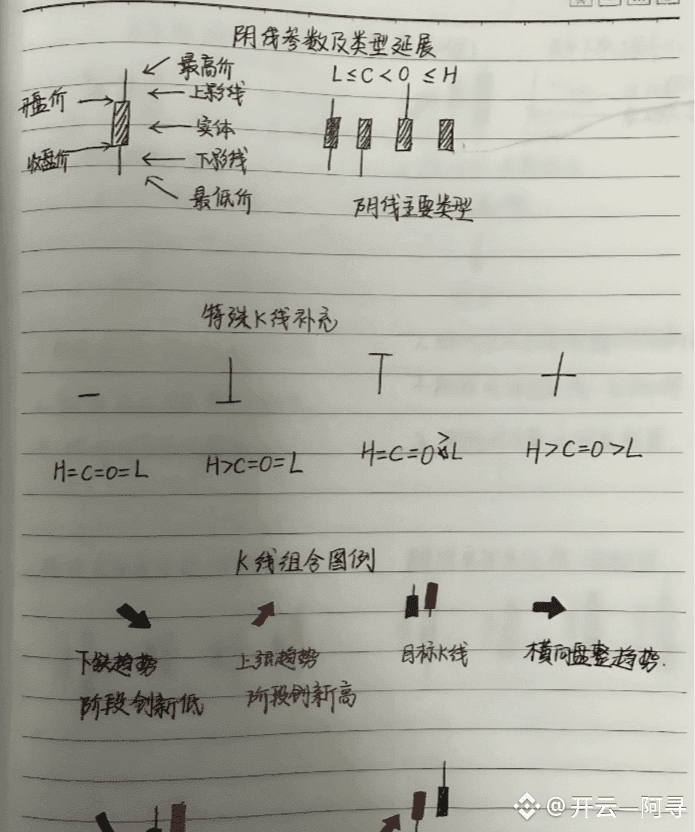 阴线参数及类型延展
最高价
L≤C<O≤H
上影线
开盘价
实体
收盘价
下影线
最低价
阴线主要类型
特殊K线补充
H=C=O=L
H>C=O=L
H=C=O>L
H>C=O>L
K线组合图例
下跌趋势
阶段创新低
上涨趋势
阶段创新高
目标K线
横向盘整趋势.
@开云—阿寻